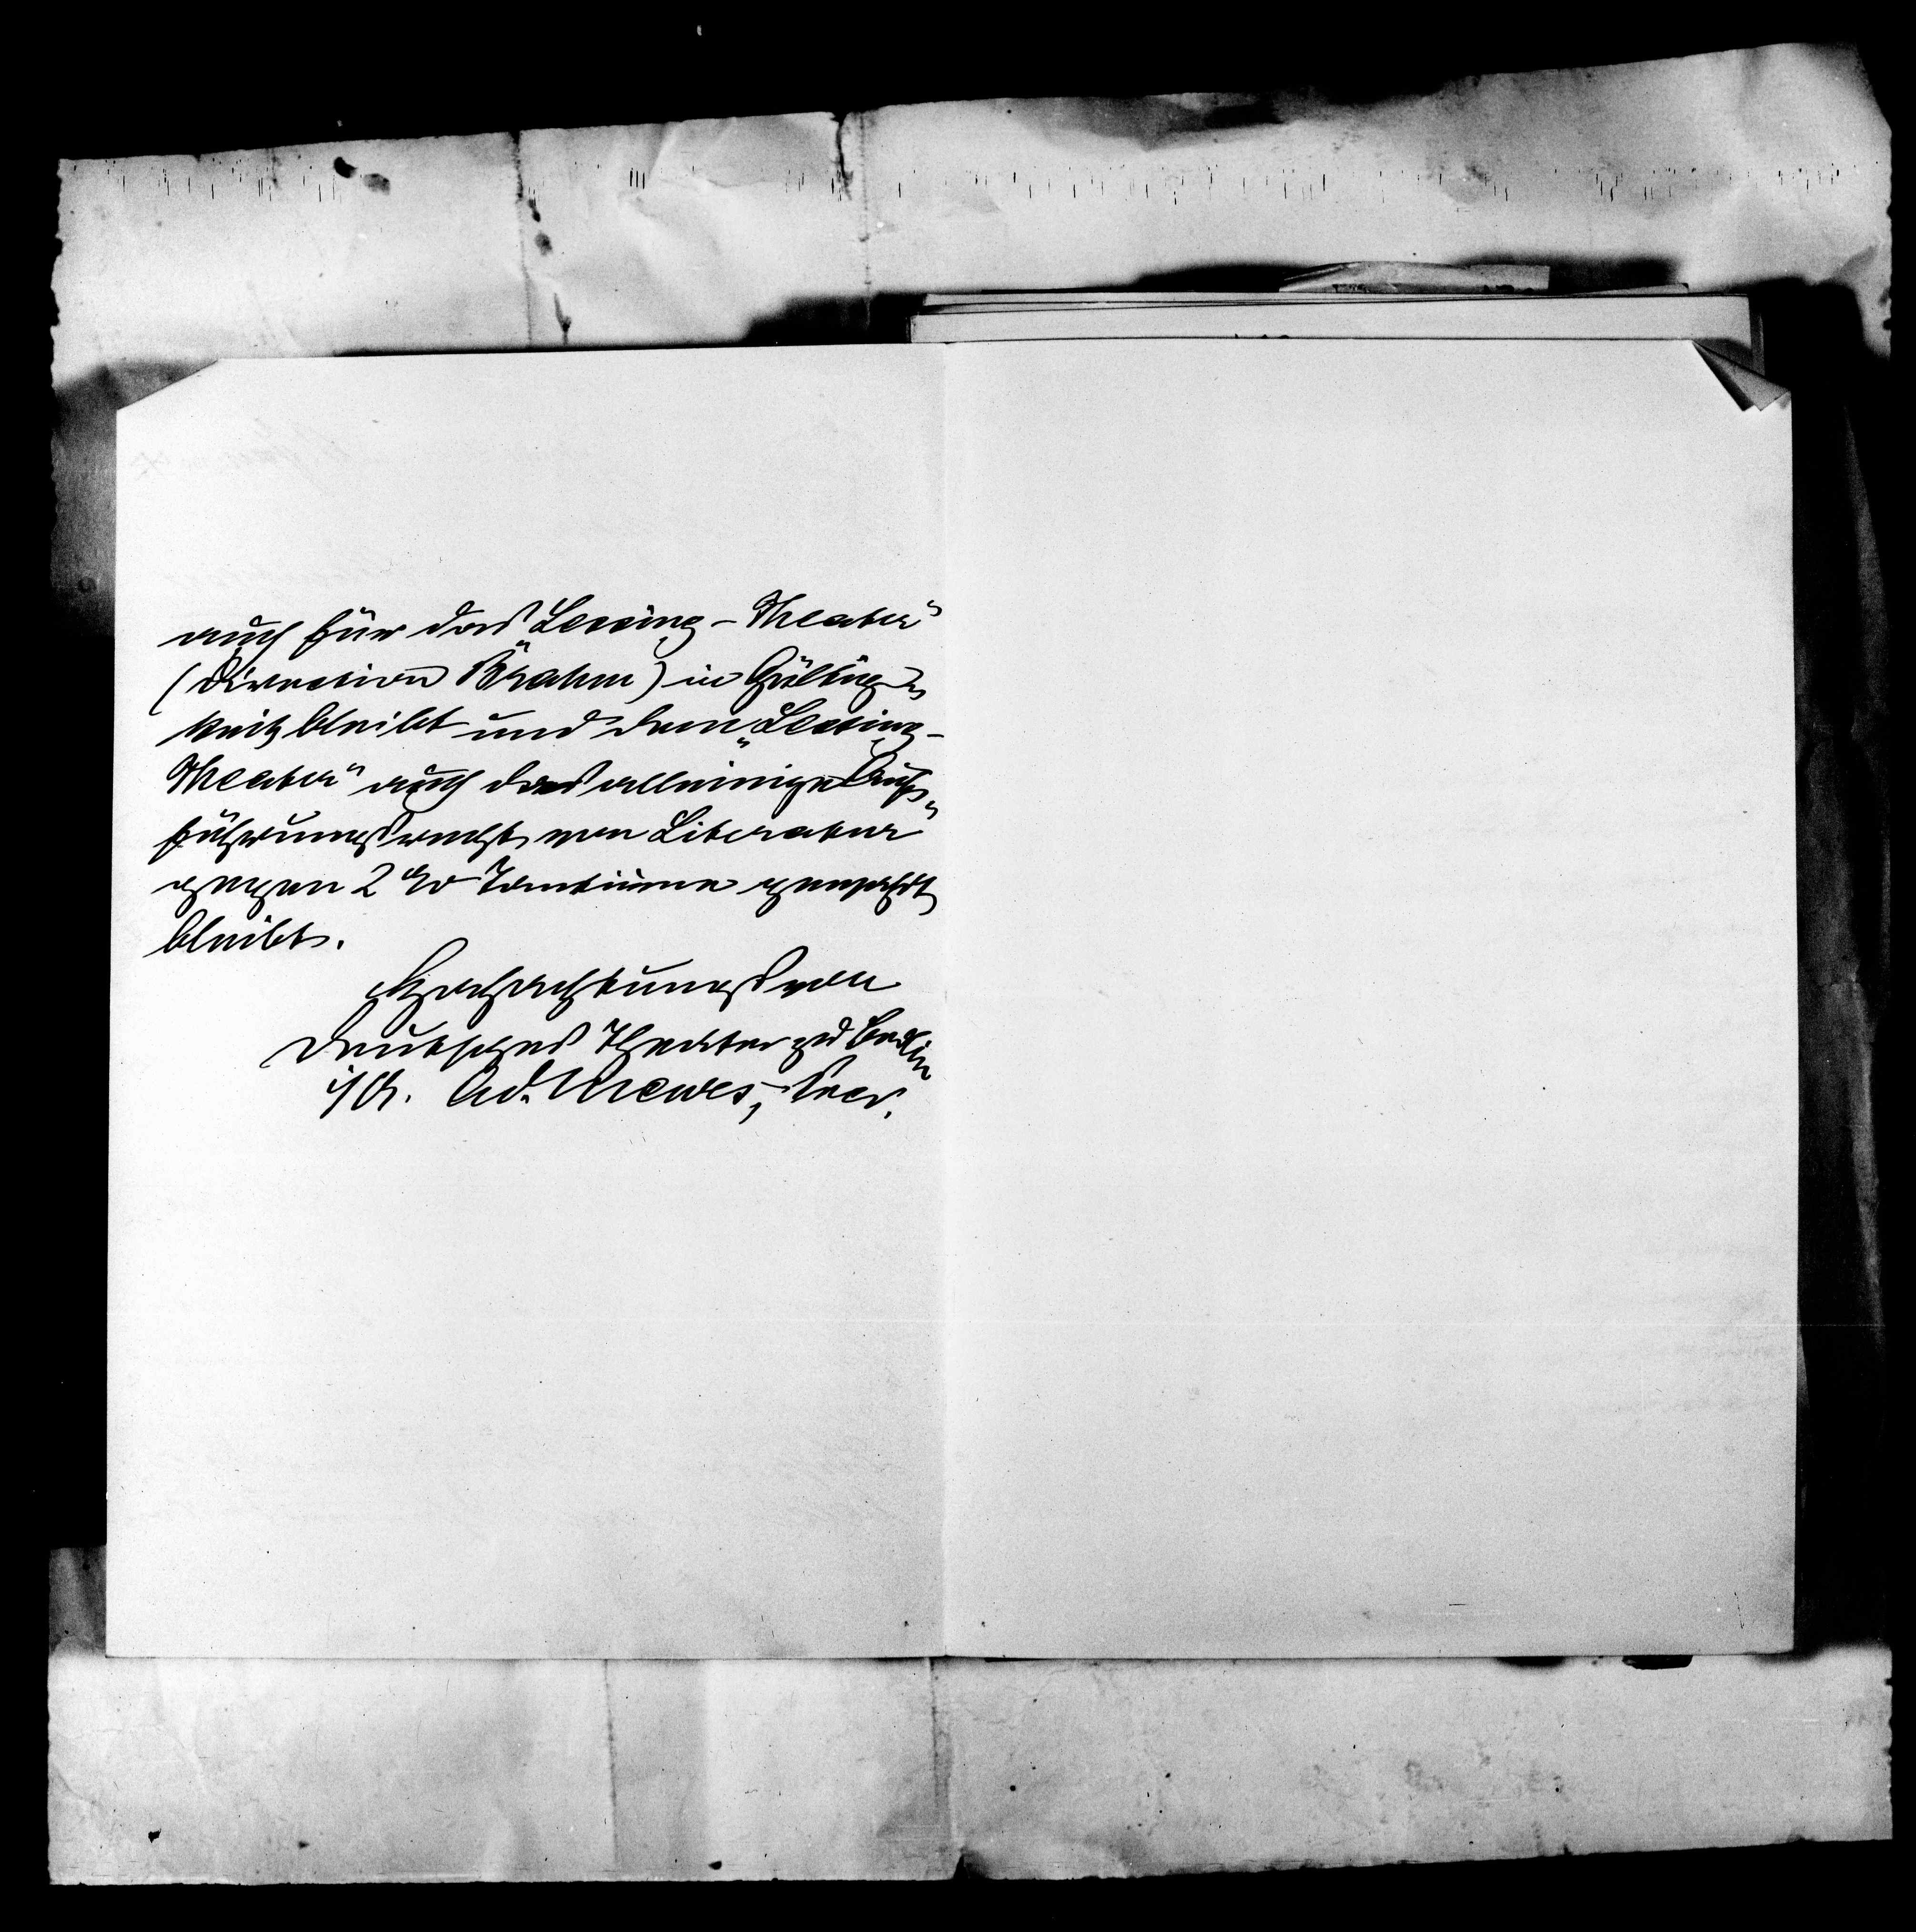 auch für das „Lessing-Theater“
(Direction Brahm) in Gültig-
keit bleibt und dem „Lessing-
Theater“ auch das alleinige Auf-
führungsrecht von „Literatur“
gegen 2 % Tantième gewahrt
bleibt.
Hochachtungsvoll
Deutsches Theater zu Berlin
i/A. Ad. Mewes, Secr.